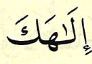 إِلَـٰهَكَ